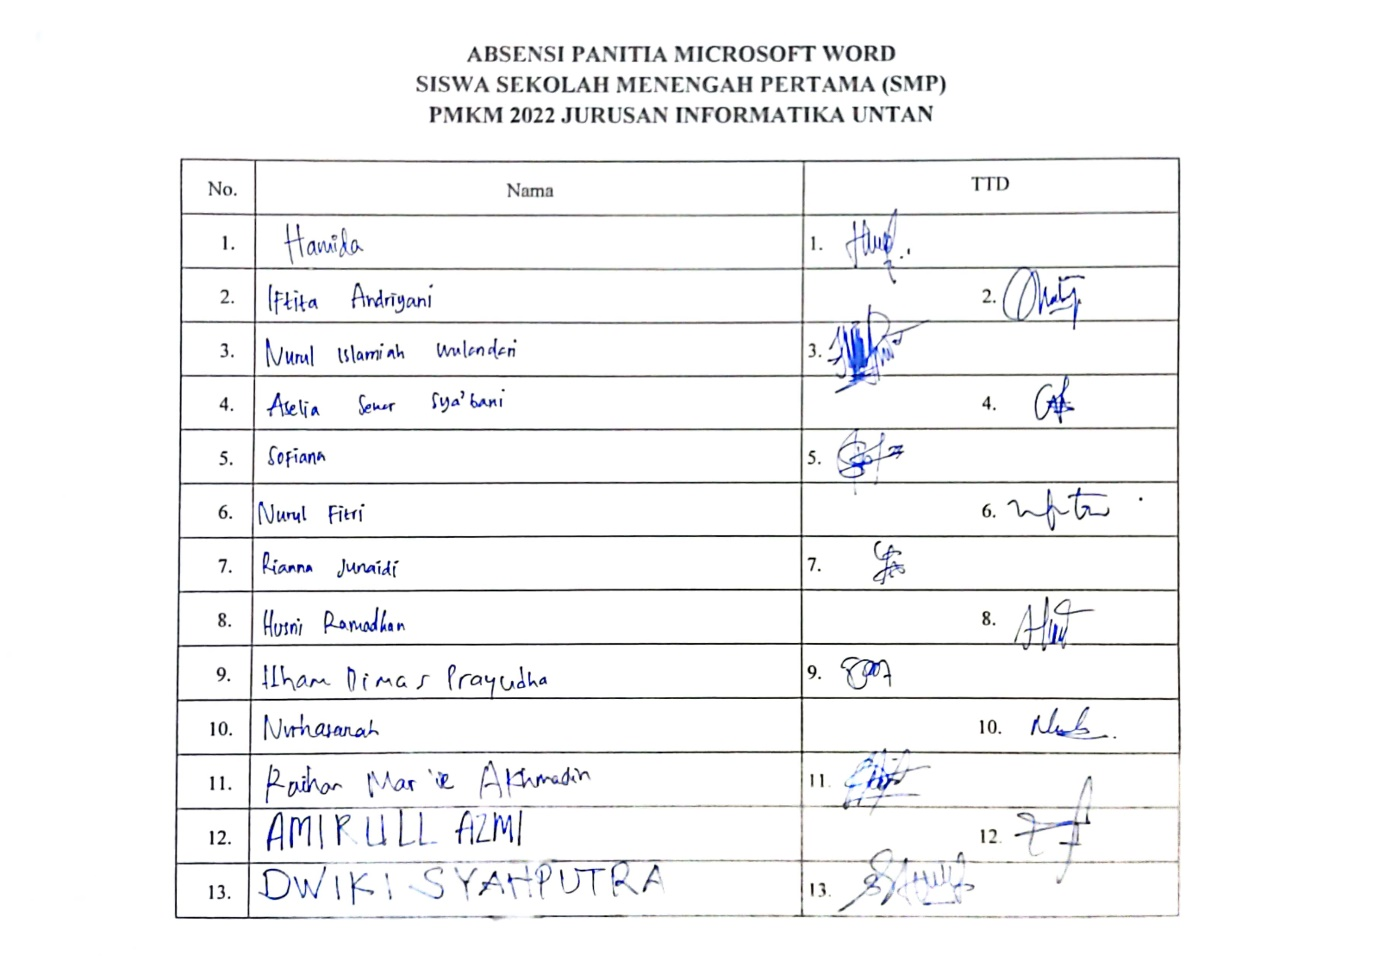 ABSENSI PANITIA MICROSOFT WORD
SISWA SEKOLAH MENENGAH PERTAMA (SMP)
PMKM 2022 JURUSAN INFORMATIKA UNTAN
No. Nama TTD
1. Hamida 1.
2. Iftita Andriyani 2.
3. Nurul Islamiah Wulandari 3.
4. Aselia Sya'bani 4.
5. Sofiana 5.
6. Nurul Fitri 6.
7. Rianna Junaidi 7.
8. Husni Ramadhan 8.
9. Ilham Dimas Prayudha 9.
10. Nurhasanah 10.
11. Raihan Akhmadin 11.
12. AMIRULL AZMI 12.
13. DWIKI SYAHPUTRA 13.